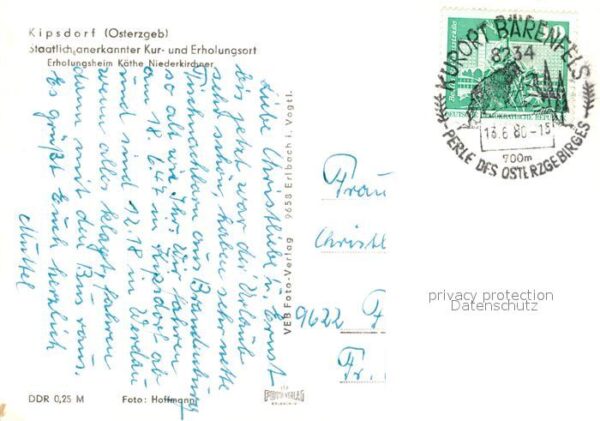 Kipsdorf (Osterzgeb)
Staatlich anerkannter Kur- und Erholungsort
Erholungsheim Käthe Niederkirchner
Liebe Christliebe u. Ernst
bis jetzt war der Urlaub
sehr schön, haben sehr nette
Tischnachbarn aus Brandenburg
so alt wie Ihr. Wir fahren
am 18. 6.47 in Kipsdorf ab
und sind 12.18 in Werdau
wenn alles klappt, fahren
dann mit den Bus raus.
Es grüßt Euch herzlich
Muttel
DDR 0,25 M
Foto: Hoffmann
VEB Foto-Verlag 9658 Erlbach i. Vogtl.
FOTO-VERLAG
KURORT BÄRENFELS
8234
13.6.80-15
700m
PERLE DES OSTERZGEBIRGES
10
DEUTSCHE DEMOKRATISCHE REPUBLIK
Frau
Christl
9622 F
Fr.
privacy protection
Datenschutz